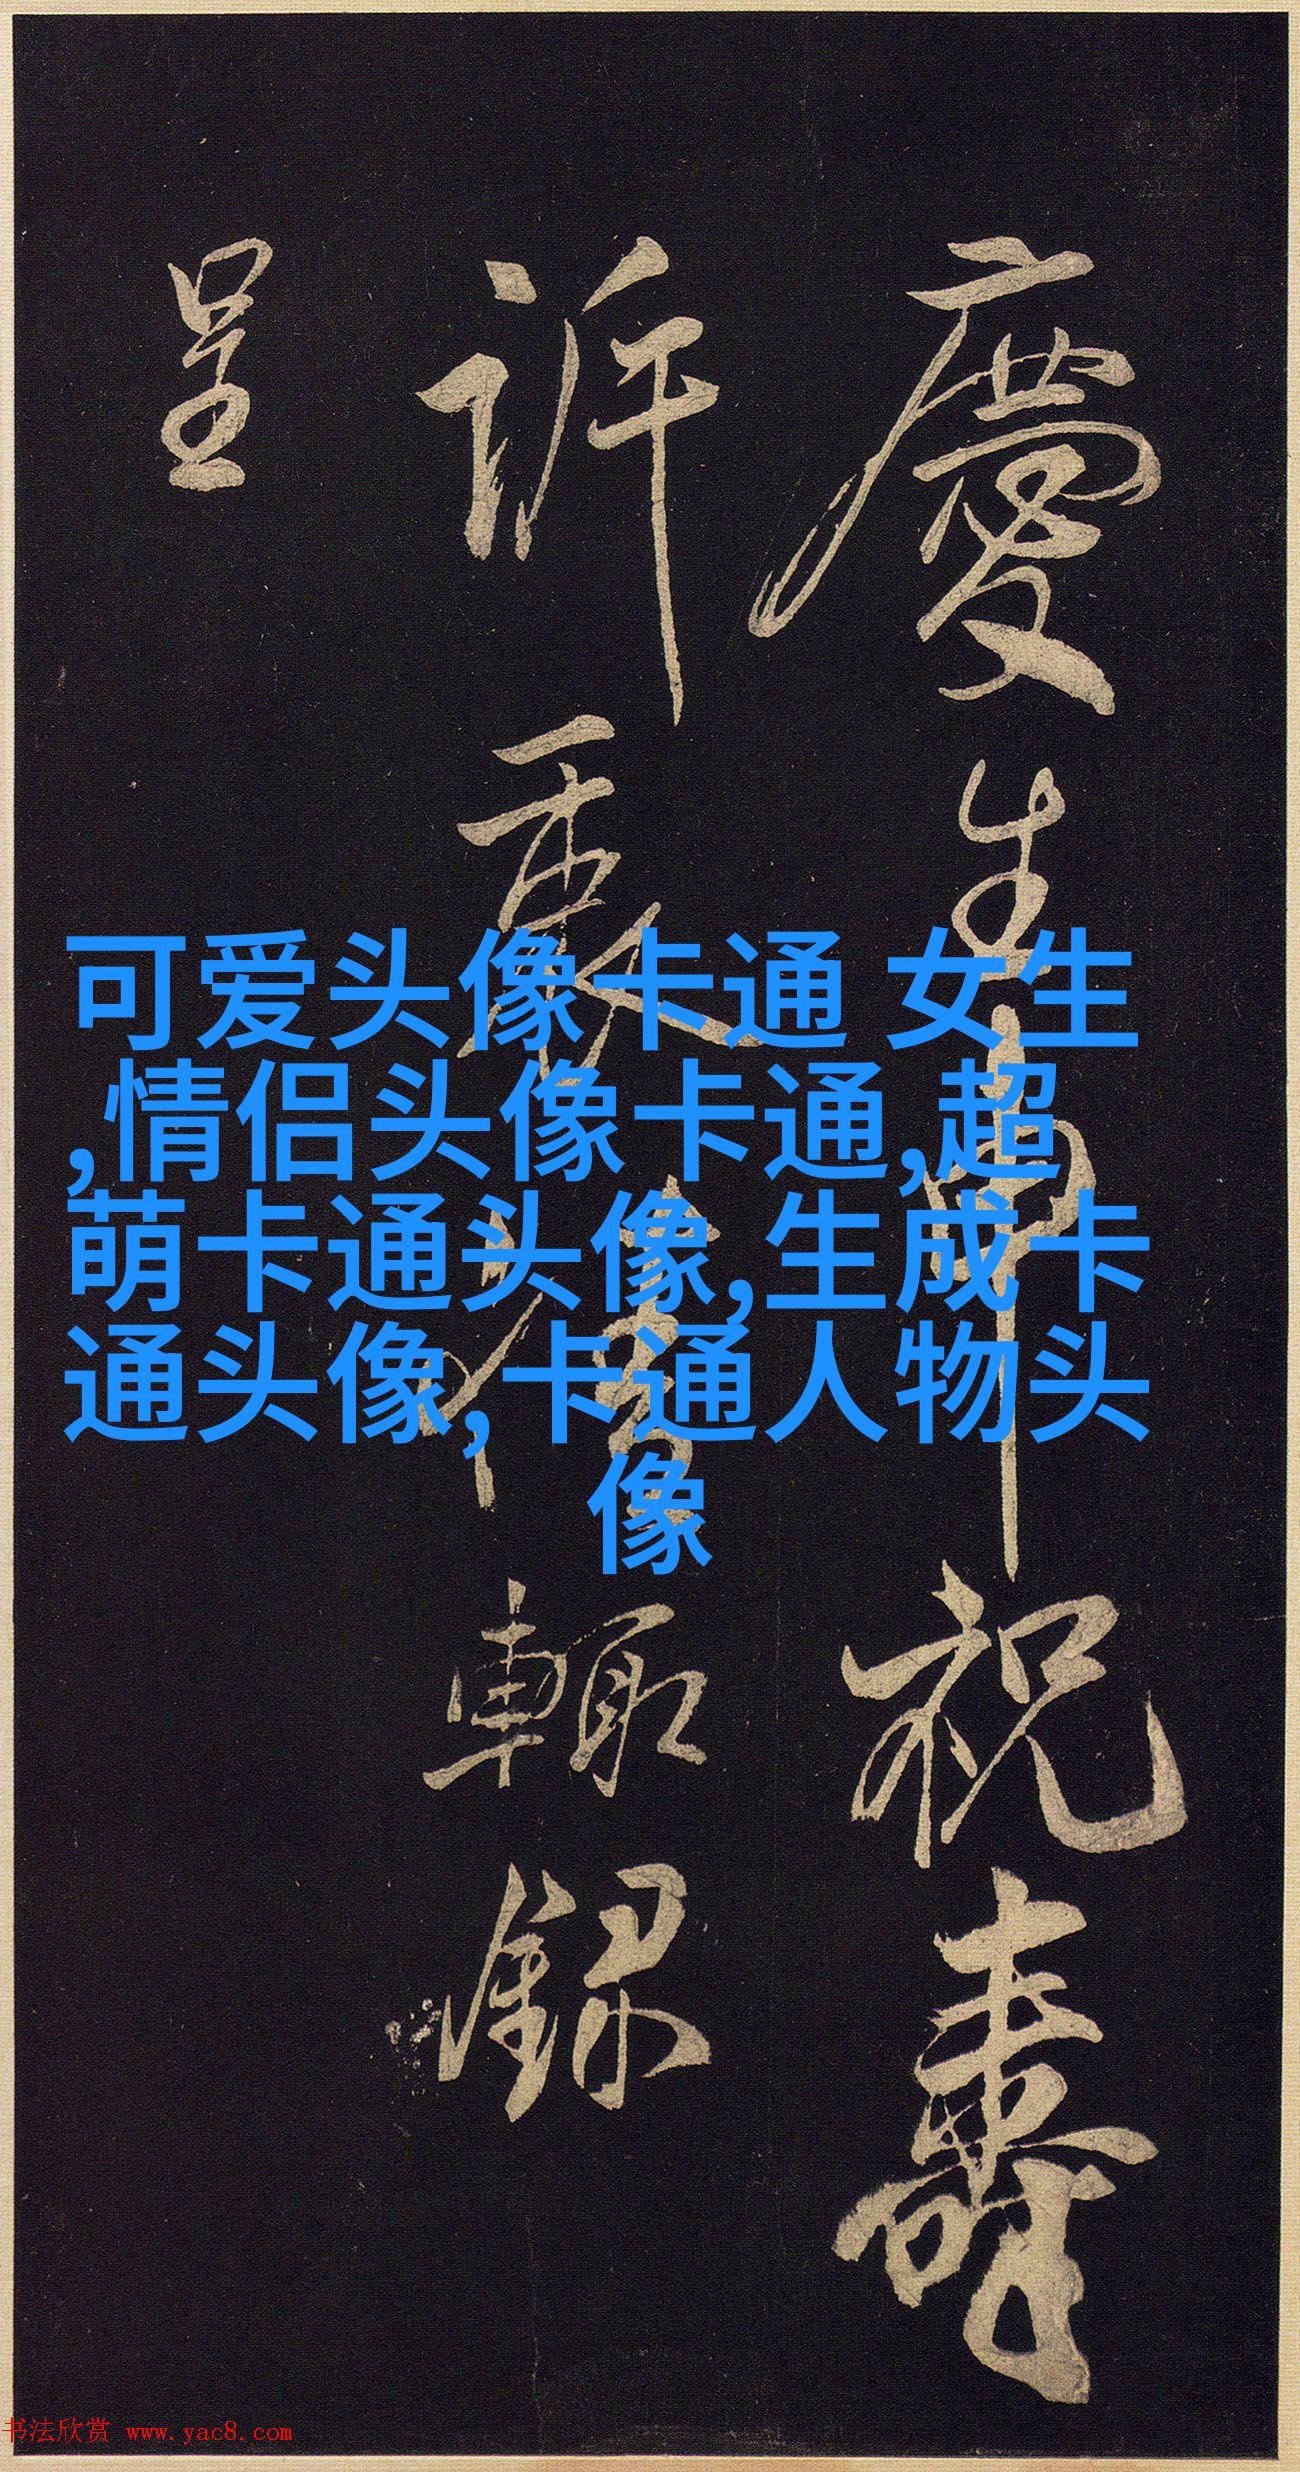 慶生申祝壽
訢輒錄
呈
可爱头像卡通 女生
,情侣头像卡通,超
萌卡通头像,生成卡
通头像,卡通人物头
像
书法欣赏 www.yac8.com